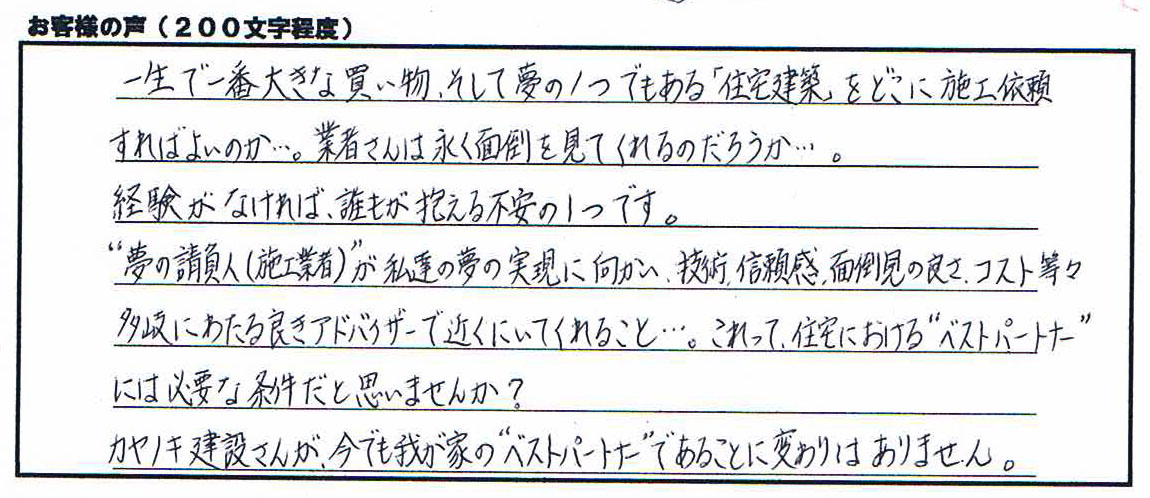 お客様の声（２００文字程度）
一生で一番大きな買い物、そして夢の1つでもある「住宅建築」をどこに施工依頼
すればよいのか…。業者さんは永く面倒を見てくれるのだろうか…。
経験がなければ、誰もが抱える不安の1つです。
“夢の請負人(施工業者)”が私達の夢の実現に向かい、技術、信頼感、面倒見の良さ、コスト等々
多岐にわたる良きアドバイザーで近くにいてくれること…。これって、住宅における“ベストパートナー”
には必要な条件だと思いませんか？
カヤノキ建設さんが、今でも我が家の“ベストパートナー”であることに変わりはありません。